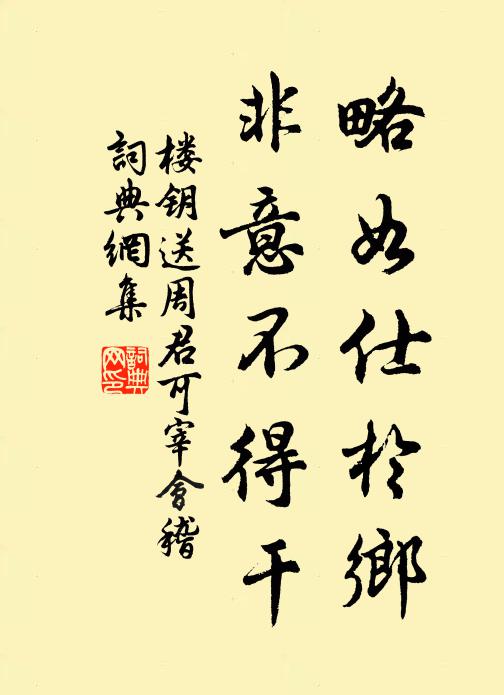 略如仕於鄉
非意不得干
楼钥送周君可宰會稽
詞典網集
詞典网印